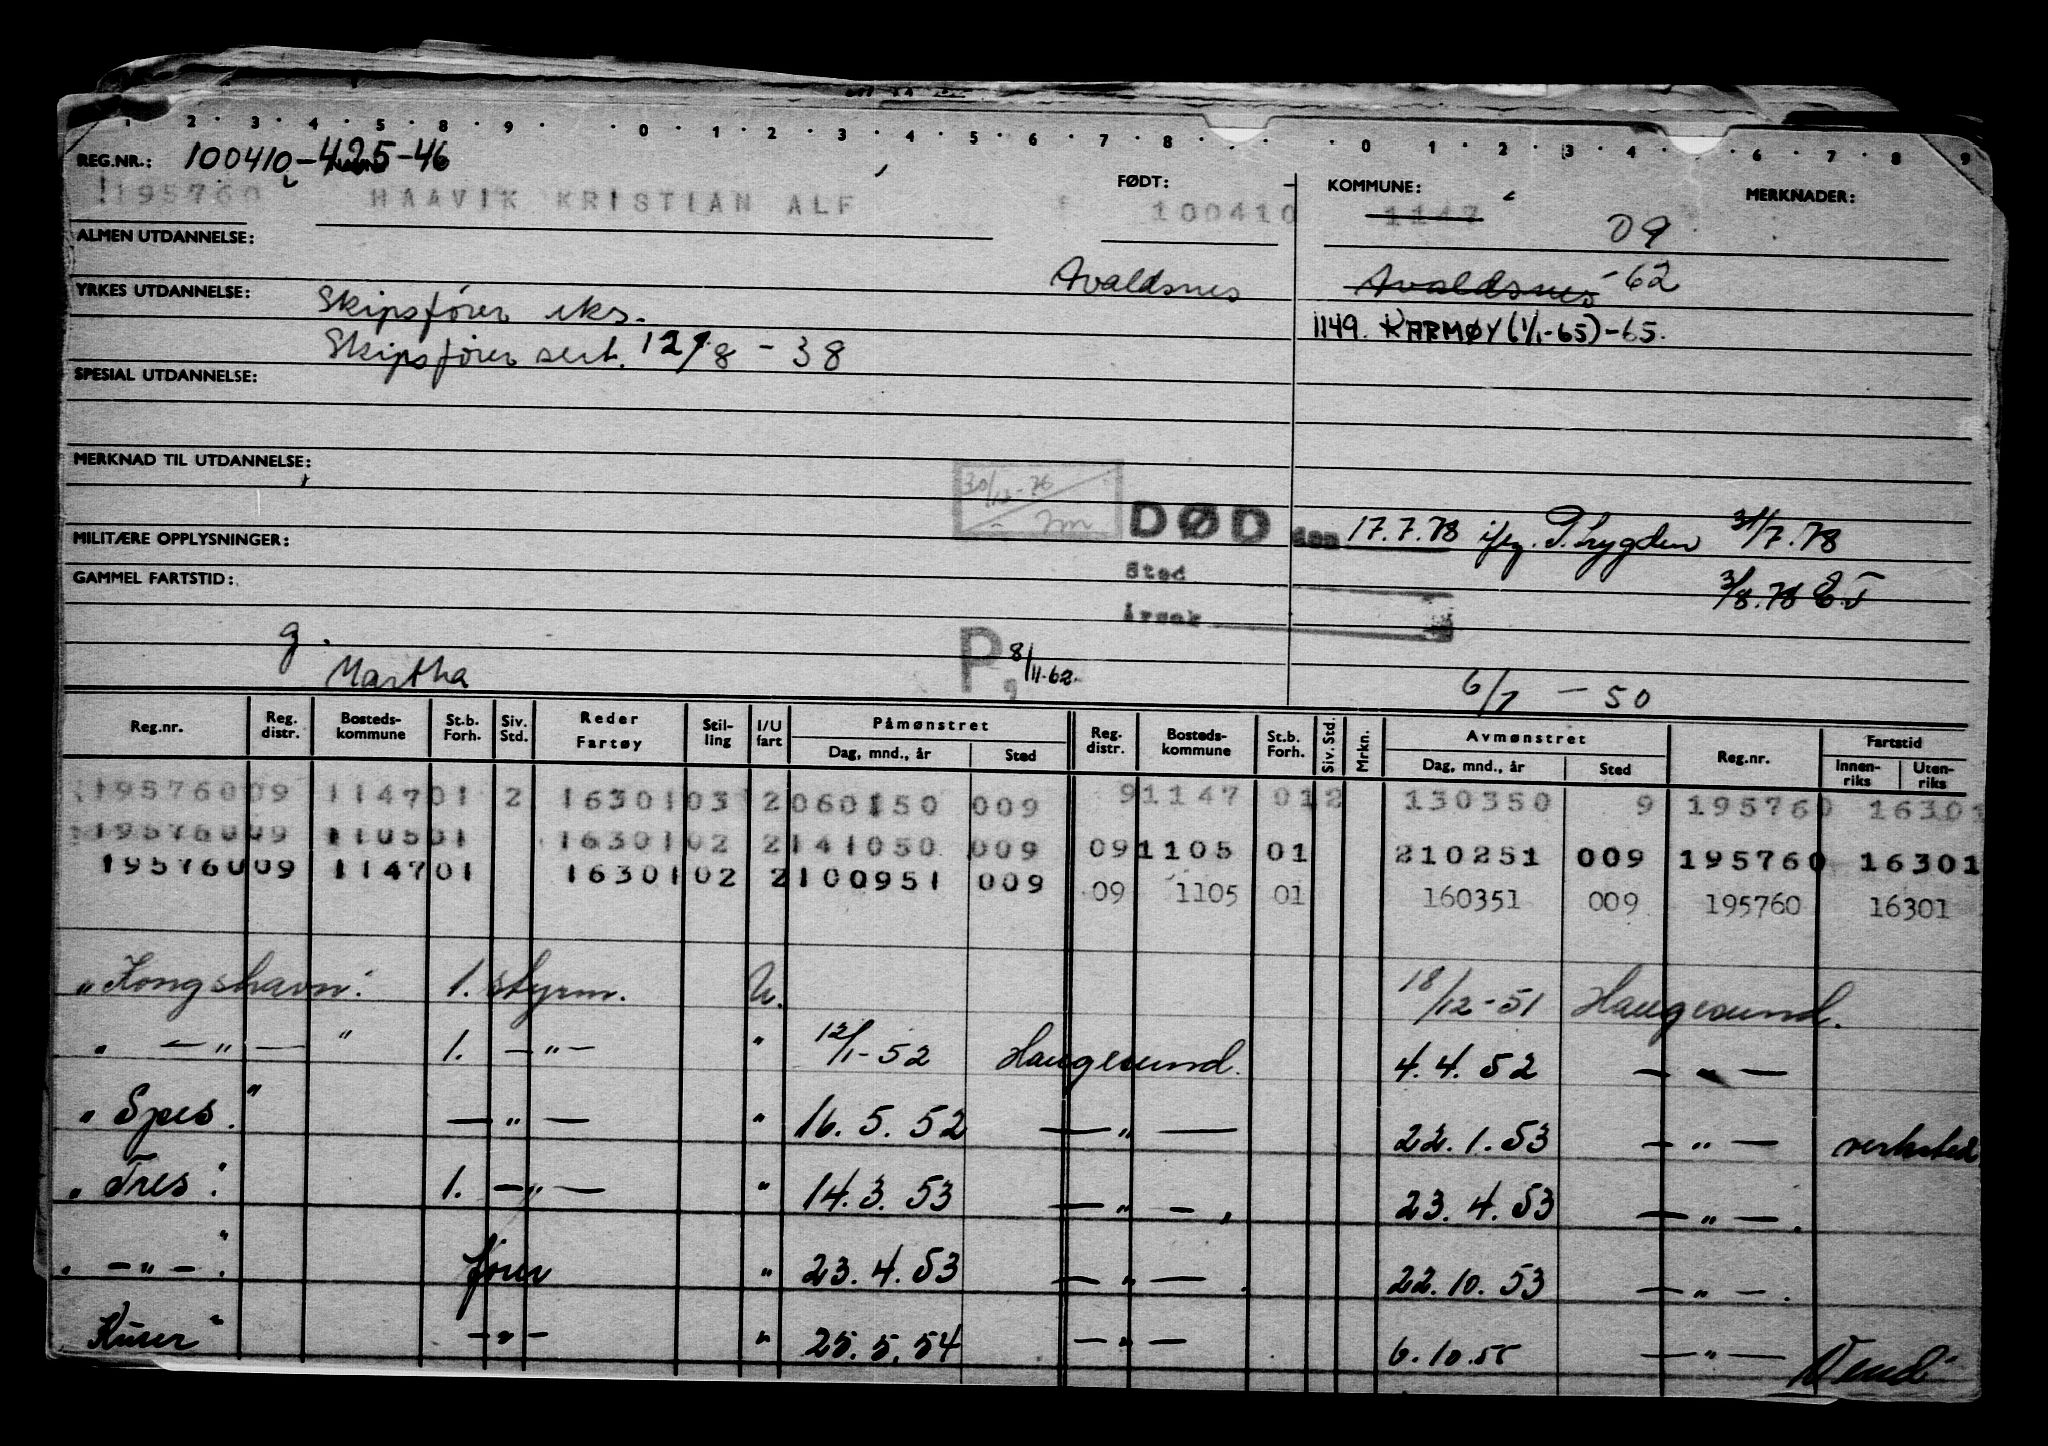 1 2 3 4 5 8 9 0 1 2 3 4 5 6 7 8 0 1 2 3 4 6 7 8 9
REG.NR.: 100410-425-46
195760 HAAVIK KRISTIAN ALF FØDT: 100410 KOMMUNE: 1147 MERKNADER:
09
ALMEN UTDANNELSE:
Avaldsnes Avaldsnes -62
YRKES UTDANNELSE: Skipsfører eks.
1149. KARMØY (1/1-65)-65.
Skipsfører sert. 12/8 - 38
SPESIAL UTDANNELSE:
MERKNAD TIL UTDANNELSE:
30/12-76
DØD den 17.7.78 iflg. P. Lygden 31/7.78
MILITÆRE OPPLYSNINGER:
Sted
GAMMEL FARTSTID:
3/8.78 ET
Årsak
g.
P, 8/11-62.
Martha
6/1 - 50
Reg.nr. Reg. distr. Bosteds-kommune St.b. Forh. Siv. Std. Reder Fartøy Stil-ling I/U fart Påmønstret Dag, mnd., år Sted Reg. distr. Bosteds-kommune St.b. Forh. Siv. Std. Mrkn. Avmønstret Dag, mnd., år Sted Reg.nr. Fartstid Innen-riks Uten-riks
195760 09 1147 01 2 16301 03 2 060150 009 9 1147 01 2 130350 9 195760 16301
195760 09 1105 01 16301 02 2 141050 009 09 1105 01 210251 009 195760 16301
195760 09 1147 01 16301 02 2 100951 009 09 1105 01 160351 009 195760 16301
"Kongshavn" 1. styrm. U. 18/12-51 Haugesund.
" — " — " 1. — " — " 12/1-52 Haugesund. 4.4.52 — " —
"Spes." — " — " 16.5.52 — " — 22.1.53 — " — verksted
"Tres." 1. — " — " 14.3.53 — " — . 23.4.53 — " — .
" — " — ." fører " 23.4.53 — " — . 22.10.53 — " — .
Kurer" — " — " 25.5.54 — " — 6.10.55 — " —
Vend